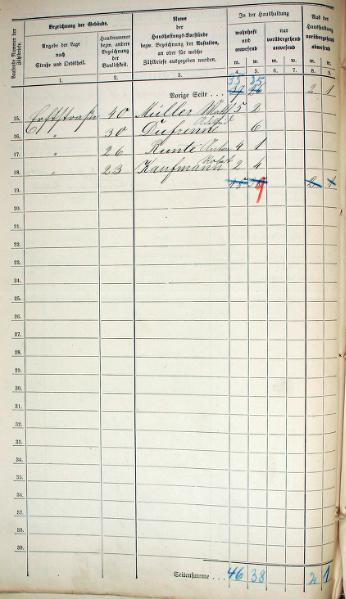 Laufende Nummer der Zählbriefe.
Bezeichnung der Gebäude.
Angabe der Lage nach Straße und Ortsteil.
Hausnummer bezw. andere Bezeichnung der Baulichkeit.
Name der Haushaltungs-Vorstände bezw. Bezeichnung der Anstalten, an oder für welche Zählbriefe ausgegeben wurden.
In der Haushaltung
wohnhaft und anwesend
nur vorübergehend anwesend
Aus der Haushaltung vorübergehend abwesend
m. w. m. w. m. w.
1. 2. 3. 4. 5. 6. 7. 8. 9.
33 25
Vorige Seite . . . 2 1
15. 40 Müller 5 2
16. " 30 6
17. " 26 Runte 4 1
18. " 23 Kaufmann 2 4
19.
20.
21.
22.
23.
24.
25.
26.
27.
28.
29.
30.
31.
32.
33.
34.
35.
36.
37.
38.
39.
Seitensumme . . 46 38 2 1